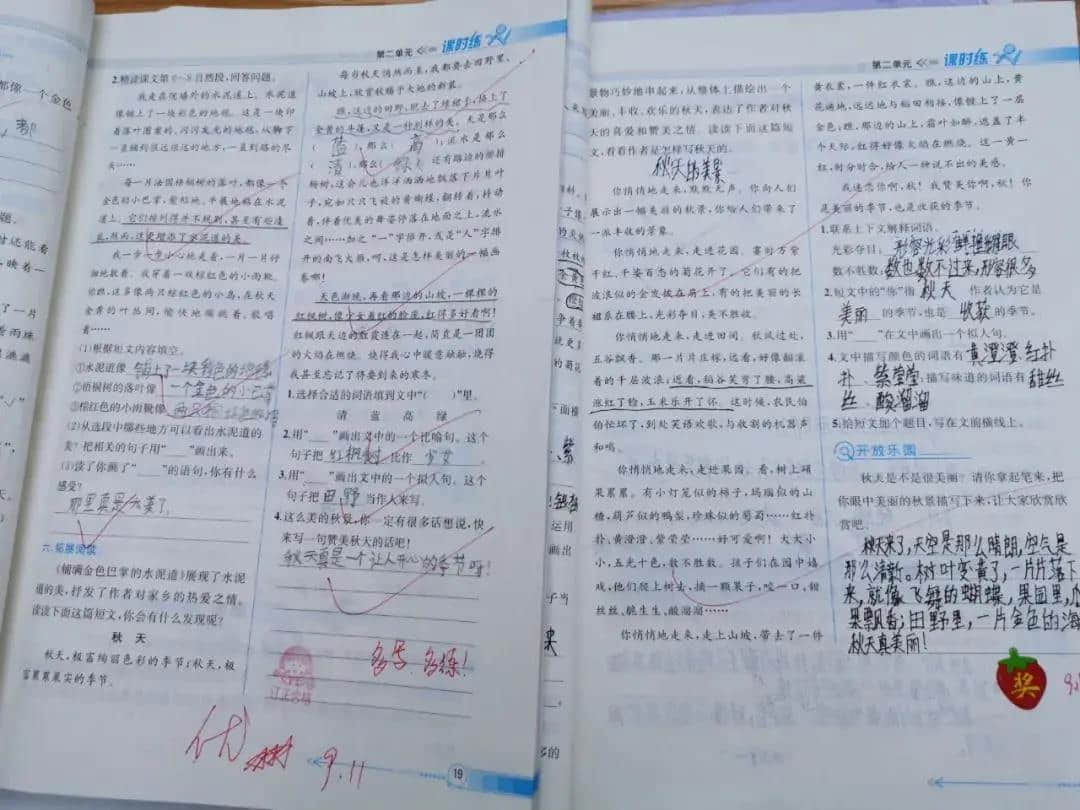 都像一个金色
第二单元
课时练
2.精读课文第6~8自然段,回答问题。
我走在院墙外的水泥道上。水泥道
像铺上了一块彩色的地毯。这是一块印
着落叶图案的、闪闪发光的地毯,从脚下
一直铺到很远很远的地方,一直到路的尽
头……
每一片法国梧桐树的落叶,都像一个
金色的小巴掌,熨帖地、平展地粘在水泥
道上。它们排列得并不规则,甚至有些凌
乱,然而,这更增添了水泥道的美。
我一步一步小心地走着,一片一片仔
细地数着。我穿着一双棕红色的小雨靴。
你瞧,这多像两只棕红色的小鸟,在秋天
金黄的叶丛间,愉快地蹦跳着、歌唱
着……
(1)根据短文内容填空。
①水泥道像 铺上了一块彩色的地毯
②梧桐树的落叶像 一个金色的小巴掌
③棕红色的小雨靴像 两只棕红色的小鸟
(2)从选段中哪些地方可以看出水泥道的
美?把相关的句子用“____”画出来。
(3)读了你画了“____”的语句,你有什么
感受?
那里真是太美了。
六、拓展阅读
《铺满金色巴掌的水泥道》展现了水泥
道的美,抒发了作者对家乡的热爱之情。
读读下面这篇短文,你会有什么发现呢?
秋 天
秋天,极富绚丽色彩的季节;秋天,极
富累累果实的季节。
每当秋天悄然而至,我都要去田野里、
山坡上,欣赏收获于大地的新装。
瞧,这边的田野,脱去了绿褂子,换上了
金黄的斗篷,又是一种别样的美。天是那么
( 蓝 ),那么( 高 );流水是那么
( 清 ),那么( 绿 )。还有路边的排排
梧树,这会儿也洋洋洒洒地飘落下片片叶
子,宛如只只飞旋的黄蝴蝶,翻转着,抖动
着,伴着优美的舞姿停落在地面之上、流水
之间……加之“一”字排开,或是“人”字排
开的南飞大雁。呵,这是怎样美丽的一幅画
卷啊!
天色渐晚,再看那边的山坡,一棵棵的
红枫树,像少女羞红的脸庞,红得多好看啊!
红枫跟天边的红霞连在一起,简直是一团团
的火焰在燃烧。烧得我心中暖意融融,烧得
我甚至忘记了将要到来的寒冬。
1.选择合适的词语填到文中“( )”里。
清 蓝 高 绿
2.用“____”画出文中的一个比喻句。这个
句子把 红枫树 比作 少女 。
3.用“____”画出文中的一个拟人句。这个
句子把 田野 当作人来写。
4.这么美的秋景,你一定有很多话想说,快
来写一句赞美秋天的话吧!
秋天真是一个让人开心的季节呀!
多长、多练!
订正合格
优
9.11
19
第二单元
课时练
景物巧妙地串起来,从整体上描绘出一个
美丽、丰收、欢喜的秋天,表达了作者对秋
天的喜爱和赞美之情。读读下面这篇短
文,看看作者是怎样写秋天的。
秋天的美景
你悄悄地走来,默默无声。你向人们
展示出一幅美丽的秋景,你给人们带来了
一派丰收的景象。
你悄悄地走来,走进花园。霎时万紫
千红,千姿百态的菊花开了。它们有的把
波浪似的金发披在肩上,有的把美丽的长
裙系在腰上,光彩夺目,美不胜收。
你悄悄地走来,走进田间。秋风过处,
五谷飘香。那一片片庄稼,远看,好像翻滚
着的千层波浪;近看,稻谷笑弯了腰,高粱
涨红了脸,玉米乐开了怀。这时候,农民伯
伯忙坏了,到处笑语欢歌,与收割的机器声
和鸣。
你悄悄地走来,走进果园。看,树上硕
果累累。有小灯笼似的柿子,玛瑙似的山
楂,葫芦似的鸭梨,珍珠似的葡萄……红扑
扑、黄澄澄、紫莹莹……好可爱啊!大大小
小,五光十色,数不胜数。孩子们在园中嬉
戏,他们爬上树去,摘一颗果子,咬一口,甜
丝丝、脆生生、酸溜溜……
你悄悄地走来,走上山坡,带去了一件
黄衣裳,一件红衣裳。瞧,这边的山上,黄
花遍地,远远地与稻田相接,像镀上了一层
金色;瞧,那边的山上,霜叶如醉,遮盖了半
个天际,红得好像火焰在燃烧。这一黄一
红,时分时合,给人一种说不出的美感。
我迷恋你啊,秋!我赞美你啊,秋!你
是美丽的季节,也是收获的季节。
1.联系上下文解释词语。
光彩夺目: 形容光彩鲜艳耀眼
数不胜数: 数也数不过来,形容很多
2.短文中的“你”指 秋天 ,作者认为它是
美丽 的季节,也是 收获 的季节。
3.用“____”在文中画出一个拟人句。
4.文中描写颜色的词语有 黄澄澄、红扑
扑、紫莹莹,描写味道的词语有 甜丝
丝、酸溜溜
5.给短文加个题目,写在文前横线上。
开放乐园
秋天是不是很美丽?请你拿起笔来,把
你眼中美丽的秋景描写下来,让大家欣赏欣
赏吧。
秋天来了,天空是那么晴朗,空气是
那么清新。树叶变黄了,一片片落下
来,就像飞舞的蝴蝶,果园里,
果飘香;田野里,一片金色的海
秋天真美丽!
奖